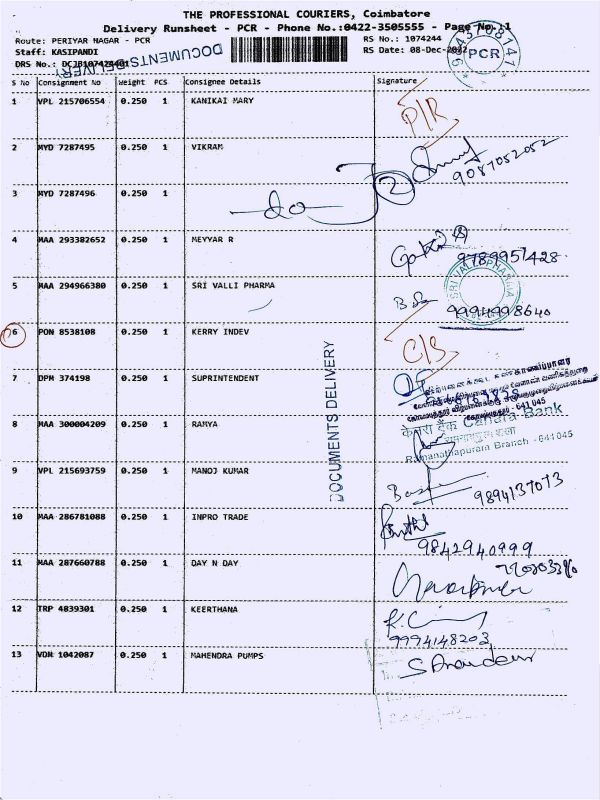 THE PROFESSIONAL COURIERS, Coimbatore
Delivery Runsheet - PCR - Phone No.:0422-3505555 - Page No. 1
Route: PERIYAR NAGAR - PCR
RS No.: 1074244
Staff: KASIPANDI
RS Date: 08-Dec-2022
DRS No.:
DOCUMENTS DELIVERY
PCR
S No Consignment No Weight PCS Consignee Details Signature
1 VPL 215706554 0.250 1 KANIKAI MARY P/R
2 MYD 7287495 0.250 1 VIKRAM 9087052052
3 MYD 7287496 0.250 1 do 2
4 MAA 293382652 0.250 1 MEYYAR R 9789957428
5 MAA 294966380 0.250 1 SRI VALLI PHARMA 9994998640
SRI VALLI PHARMA
6 PON 8538108 0.250 1 KERRY INDEV C/B
DOCUMENTS DELIVERY
7 DPM 374198 0.250 1 SUPRINTENDENT
641 045
8 MAA 300004209 0.250 1 RAMYA
केनरा बैंक Canara Bank
Ramanathapuram Branch - 641045
9 VPL 215693759 0.250 1 MANOJ KUMAR 9894137073
10 MAA 286781088 0.250 1 INPRO TRADE
9842940999
11 MAA 287660788 0.250 1 DAY N DAY
12 TRP 4839301 0.250 1 KEERTHANA
9994148203
13 VDN 1042087 0.250 1 MAHENDRA PUMPS